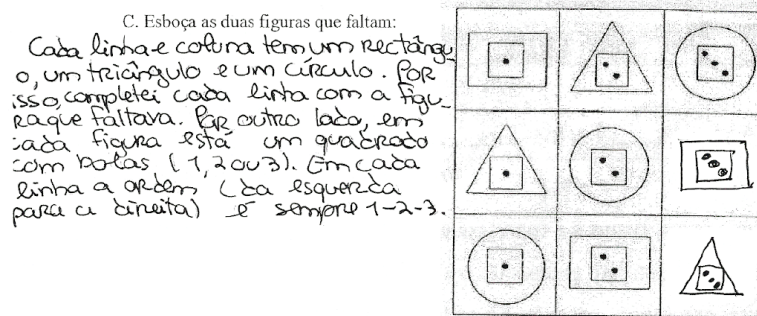 C. Esboça as duas figuras que faltam:
Cada linha e coluna tem um rectângu_
o, um triângulo e um círculo. Por
isso, completei cada linha com a figu_
ra que faltava. Por outro lado, em
cada figura está um quadrado
com bolas (1, 2 ou 3). Em cada
linha a ordem (da esquerda
para a direita) é sempre 1-2-3.